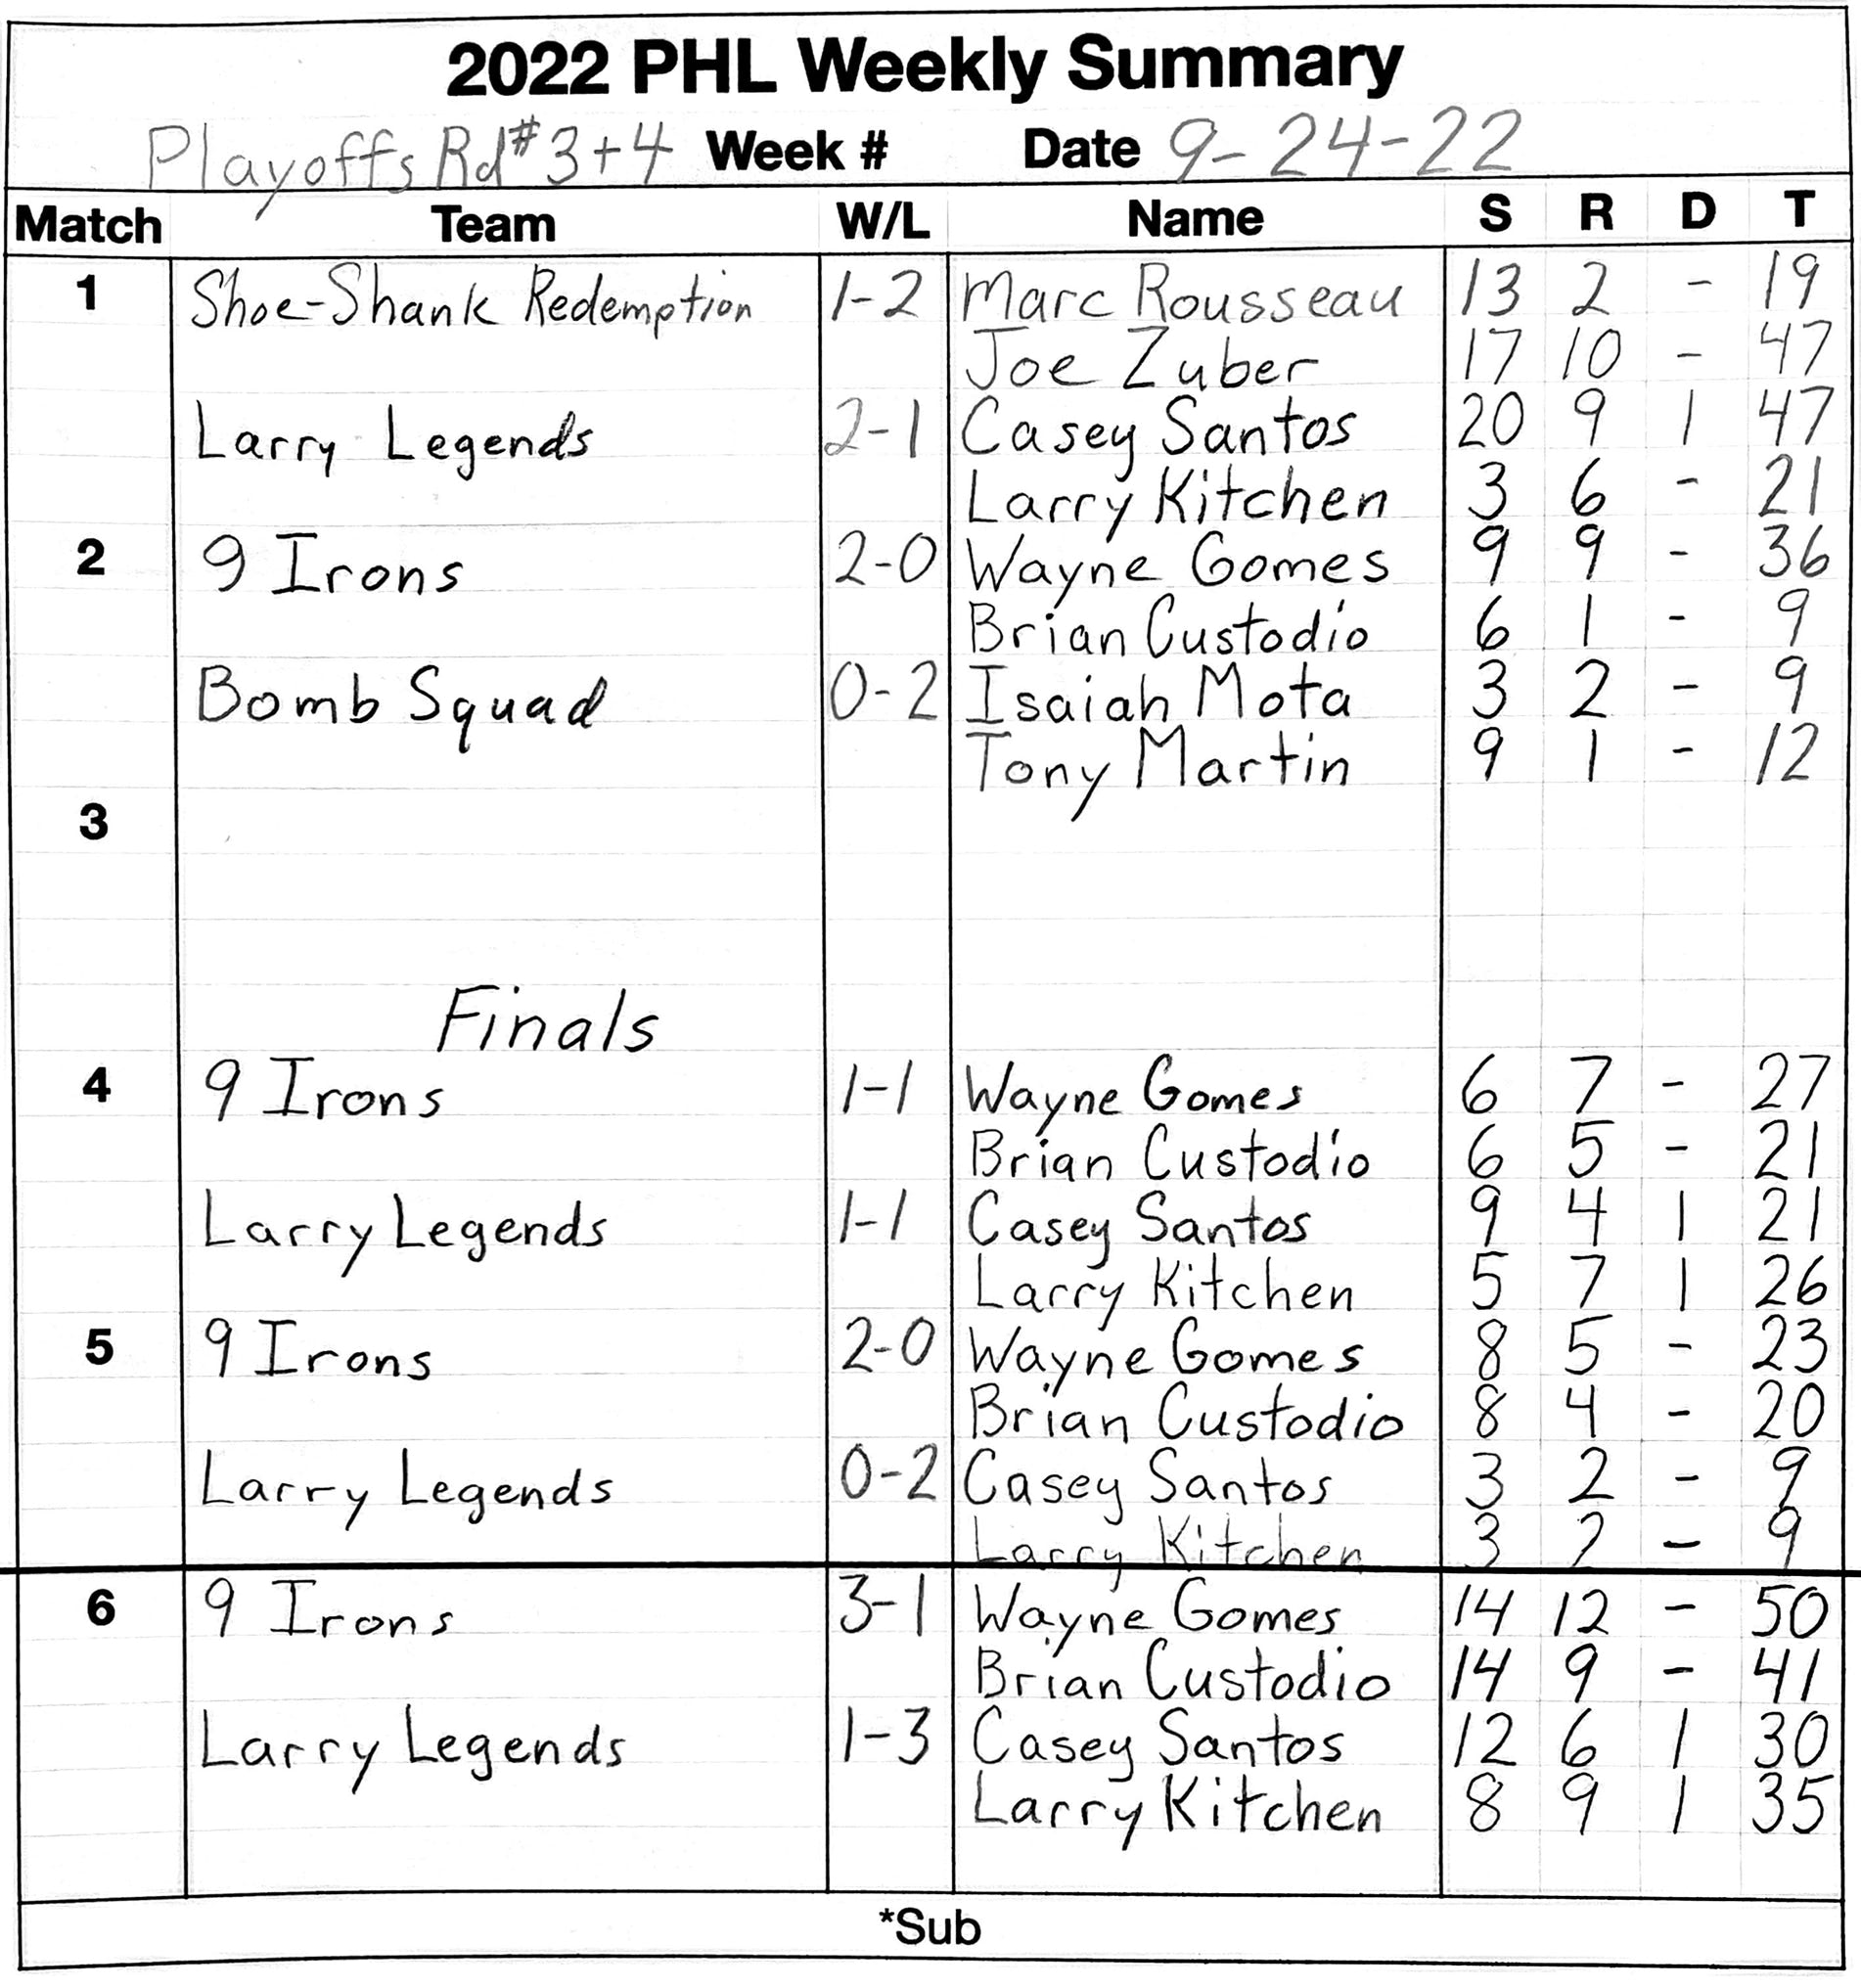 2022 PHL Weekly Summary
Playoffs Rd #3+4 Week # Date 9-24-22
Match Team W/L Name S R D T
1 Shoe-Shank Redemption 1-2 Marc Rousseau 13 2 - 19
Joe Zuber 17 10 - 47
Larry Legends 2-1 Casey Santos 20 9 1 47
Larry Kitchen 3 6 - 21
2 9 Irons 2-0 Wayne Gomes 9 9 - 36
Brian Custodio 6 1 - 9
Bomb Squad 0-2 Isaiah Mota 3 2 - 9
Tony Martin 9 1 - 12
3
Finals
4 9 Irons 1-1 Wayne Gomes 6 7 - 27
Brian Custodio 6 5 - 21
Larry Legends 1-1 Casey Santos 9 4 1 21
Larry Kitchen 5 7 1 26
5 9 Irons 2-0 Wayne Gomes 8 5 - 23
Brian Custodio 8 4 - 20
Larry Legends 0-2 Casey Santos 3 2 - 9
Larry Kitchen 3 2 - 9
6 9 Irons 3-1 Wayne Gomes 14 12 - 50
Brian Custodio 14 9 - 41
Larry Legends 1-3 Casey Santos 12 6 1 30
Larry Kitchen 8 9 1 35
*Sub